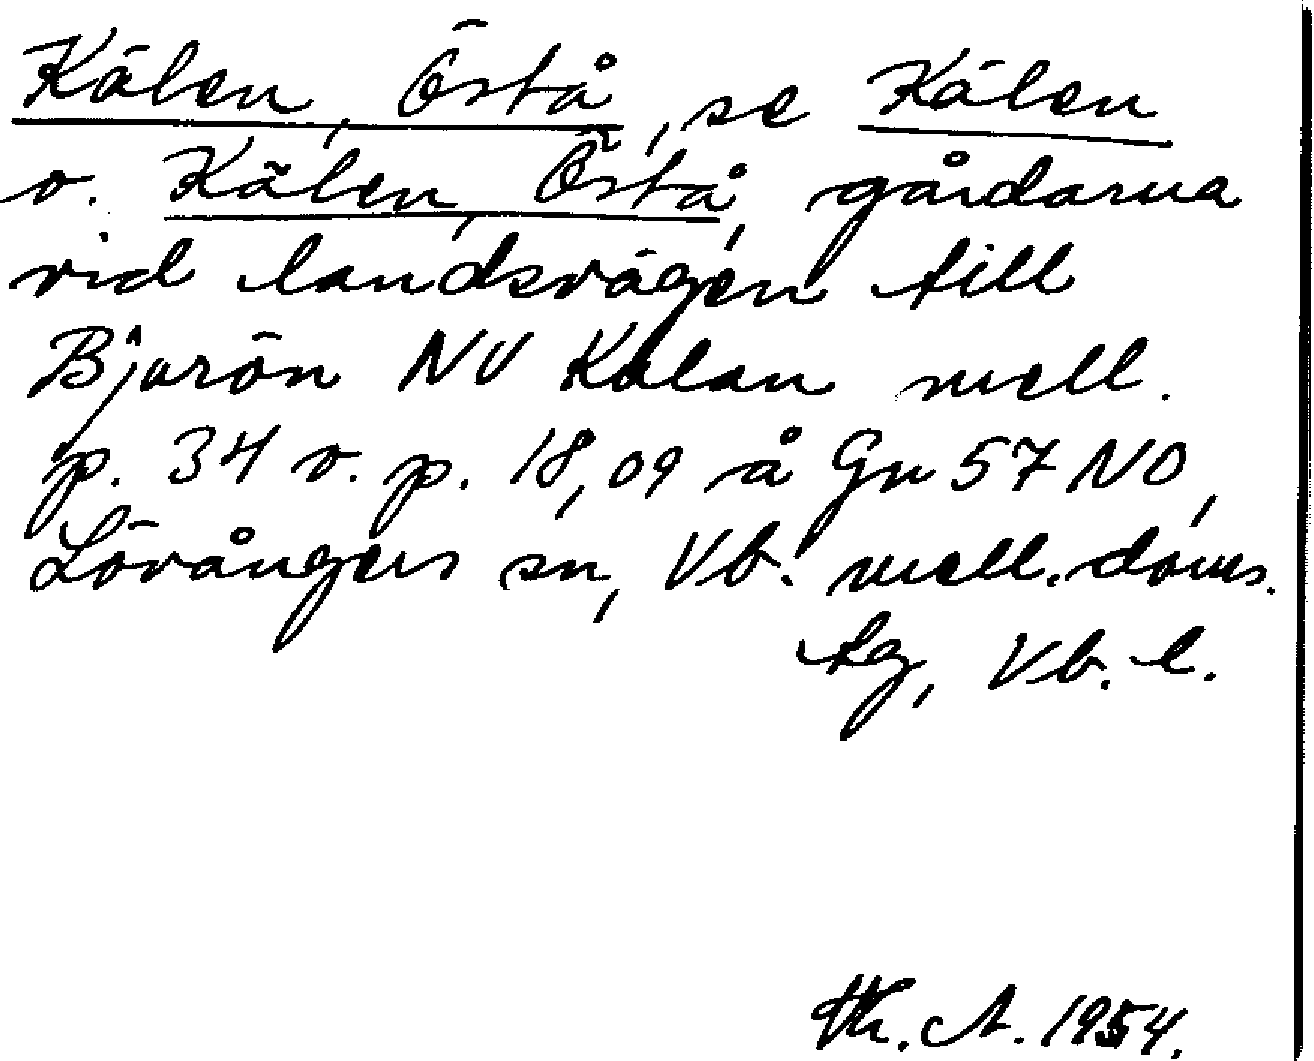 Kälen, Östå, se Kälen
o. Kälen, Östå, gårdarna
vid landsvägen till
Bjurön NV Kalan mell.
p. 34 o. p. 18,09 å Gn 57 NO,
Lövångers sn, Vb. mell. doms.
tg, Vb. l.
Th. A. 1954.